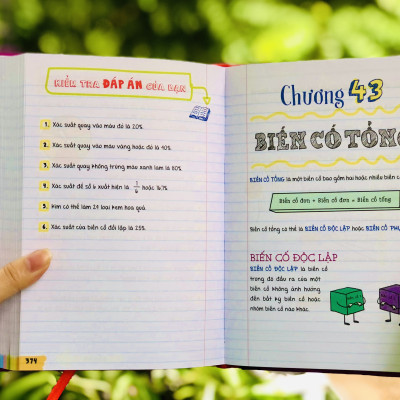 KIỂM TRA ĐÁP ÁN CỦA BẠN
1. Xác suất quay vào màu đỏ là 20%.
2. Xác suất quay vào màu vàng hoặc đỏ là 40%.
3. Xác suất quay không trúng màu xanh làm là 80%.
4. Xác suất để số 6 xuất hiện là 1/6 hoặc 16.7%.
5. Kim có thể làm 24 loại kem hoa quả.
6. Xác suất của biến cố đối lập là 25%.
374
Chương 43
BIẾN CỐ TỔNG
BIẾN CỐ TỔNG là một biến cố bao gồm hai hoặc nhiều biến c
Biến cố đơn + Biến cố đơn = Biến cố tổng
Biến cố tổng có thể là BIẾN CỐ ĐỘC LẬP hoặc BIẾN CỐ PHỤ
BIẾN CỐ ĐỘC LẬP
BIẾN CỐ ĐỘC LẬP là biến cố
trong đó đầu ra của một
biến cố không ảnh hưởng
đến bất kỳ biến cố hoặc
nhóm biến cố nào khác.